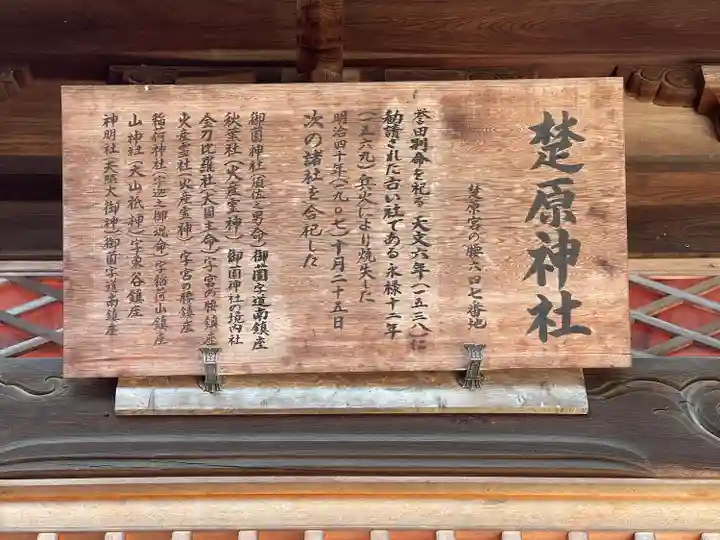 楚原神社
楚原宮の腰六四七番地
誉田別命を祀る 天文六年(一五三八)に
勧請された古い社である 永禄十二年
(一五六九)兵火により焼失した
明治四十年(一九〇七)十月二十五日
次の諸社を合祀した
御薗神社(須佐之男命)御薗字道南鎮座
秋葉社(火産霊神)御薗神社の境内社
金刀比羅社(大国主命)字宮の腰鎮座
火産霊社(火産霊神)字宮の腰鎮座
稲荷神社(宇迦之御魂命)字稲荷山鎮座
山神社(大山祇神)字東谷鎮座
神明社(天照大御神)御薗字道南鎮座